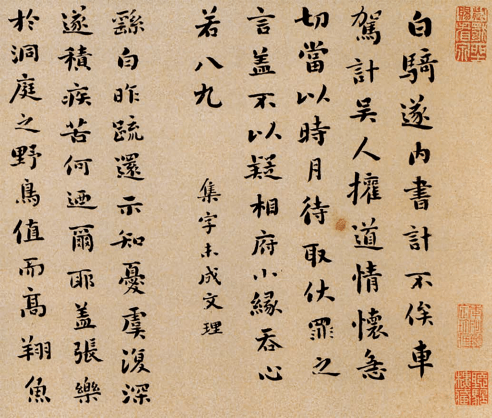 白騎遂内書計不俟車
駕計吴人擁道情懷急
切當以時月待取伏罪之
言盖不以疑相府小緣吞心
若八九
集字未成文理
繇白昨疏還示知憂虞復深
遂積疾苦何迺爾耶盖張樂
於洞庭之野鳥值而高翔魚